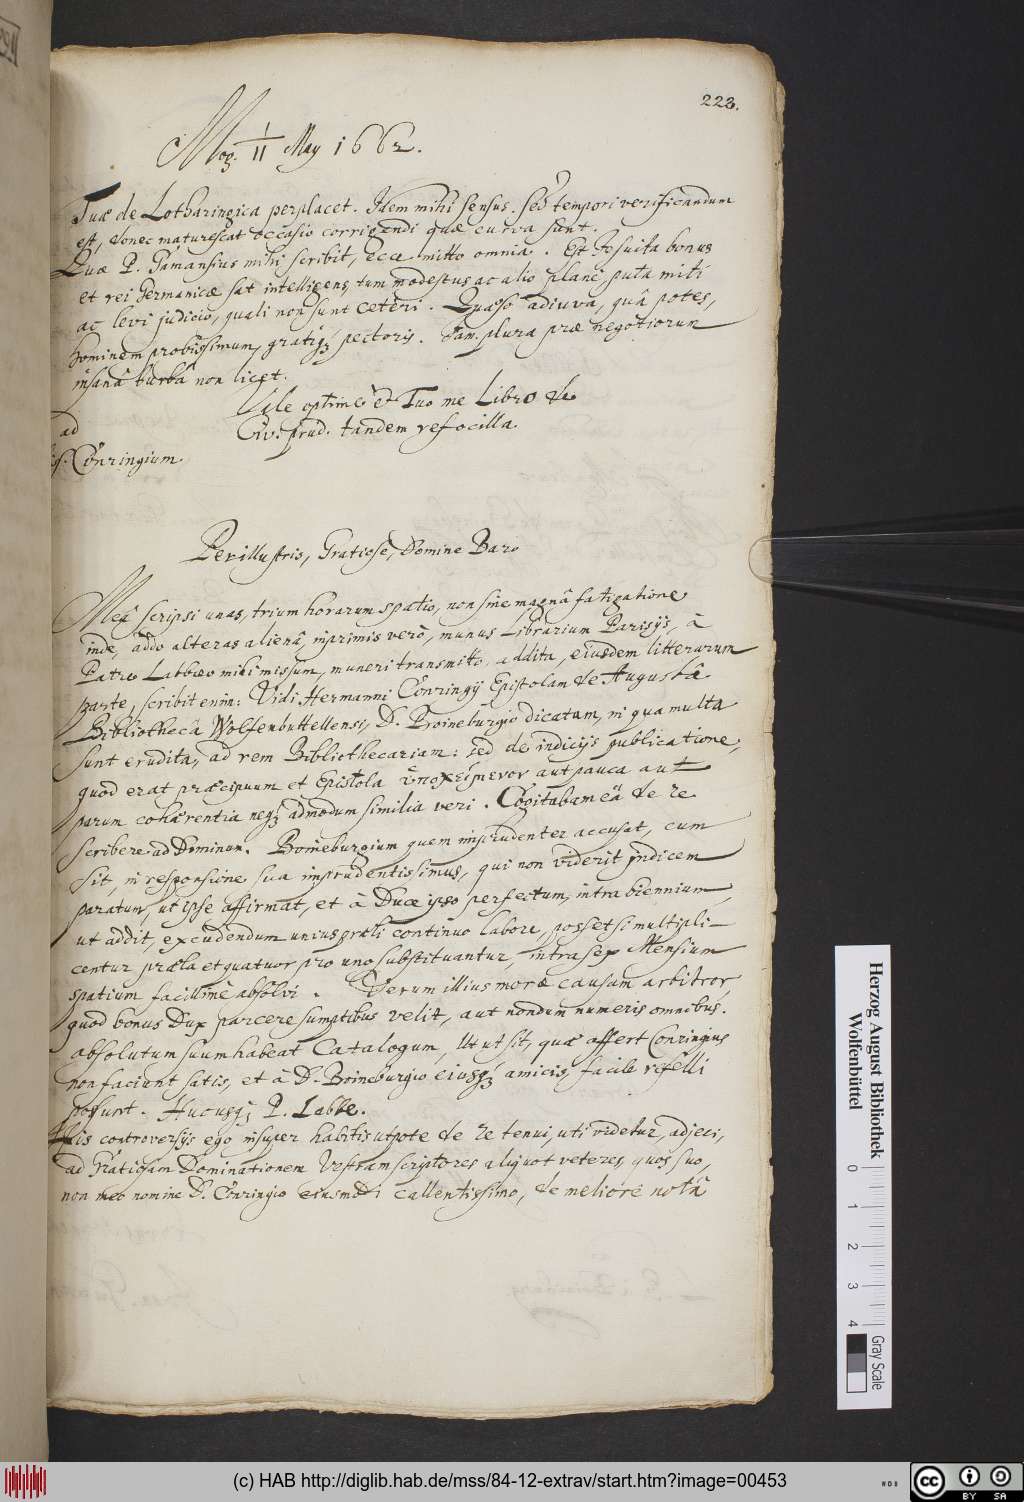 223.
Mog. 1/11 May 1662.
Tuæ de Lotharingica perplacet. Idem mihi sensus. sed tempori versificandum
est, donec maturescat occasio corrigendi quæ curva sunt.
Quæ P. Gamansius mihi scribit, ecce mitto omnia. Est Jesuita bonus
et rei Germanicæ sat intelligens, tum modestus ac alio planè puta miti
ac levi judicio, quali non sunt ceteri. Quæso adiuva, quâ potes,
hominem probissimum, gratiq; pectoris. Jam plura præ negotiorum
insanâ turbâ non licet.
Vale optimè et Tuo me Libro de
Civ. prud. tandem refocilla.
ad
Conringium
Perillustris, Gratiose, Domine Baro
Meâ scripsi unas, trium horarum spatio, non sine magnâ fatigatione
inde, addo alteras alienâ, inprimis verò, munus Librarium Parisijs, à
Patre Labbæo mihi missum, muneri transmitto, addita, eiusdem litterarum
parte, scribit enim: Vidi Hermanni Conringij Epistolam de Augusta
Bibliothecâ Wolfenbuttellensi, D. Boineburgio dicatam, in qua multa
sunt erudita, ad rem Bibliothecariam: sed de indicijs publicatione,
quod erat præcipuum et Epistola ὑποκείμενον aut pauca aut
parum cohærentia neq; admodum similia veri. Cogitabam eâ de re
scribere ad Dominum Boineburgium quem imprudenter accusat, cum
sit, in responsione sua imprudentissimus, qui non viderit indicem
paratum, ut ipse affirmat, et à Duce ipso perfectum, intra biennium,
ut addit, excudendum unius præli continuo labore, posset si multipli-
centur præla et quatuor pro uno substituantur, intra sex Mensium
spatium facillimè absolvi. Verum illius moræ causam arbitror,
quod bonus Dux parcere sumptibus velit, aut nondum numeris omnibus
absolutum suum habeat Catalogum, Ut ut sit, quæ affert Conringius
non faciunt satis, et à D. Boineburgio eiusq; amicis facile refelli
possunt. Hucusq; P. Labbe.
His controversijs ego insuper habitis utpote de re tenui, uti videtur, adjeci,
ad Gratiosam Dominationem Vestram scriptores aliquot veteres, quos suo,
non meo nomine D. Conringio eiusmodi callentissimo, de meliore notâ
Herzog August Bibliothek
Wolfenbüttel
0 1 2 3 4
Gray Scale
(c) HAB http://diglib.hab.de/mss/84-12-extrav/start.htm?image=00453
cc BY SA